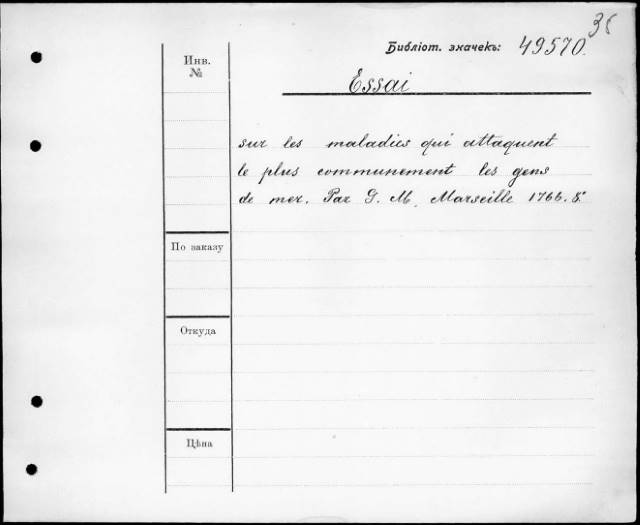 38
Библіот. значекъ: 49570.
Инв.
№
Essai
sur les maladies qui attaquent
le plus communement les gens
de mer. Par G. M. Marseille 1766. 8°
По заказу
Откуда
Цѣна